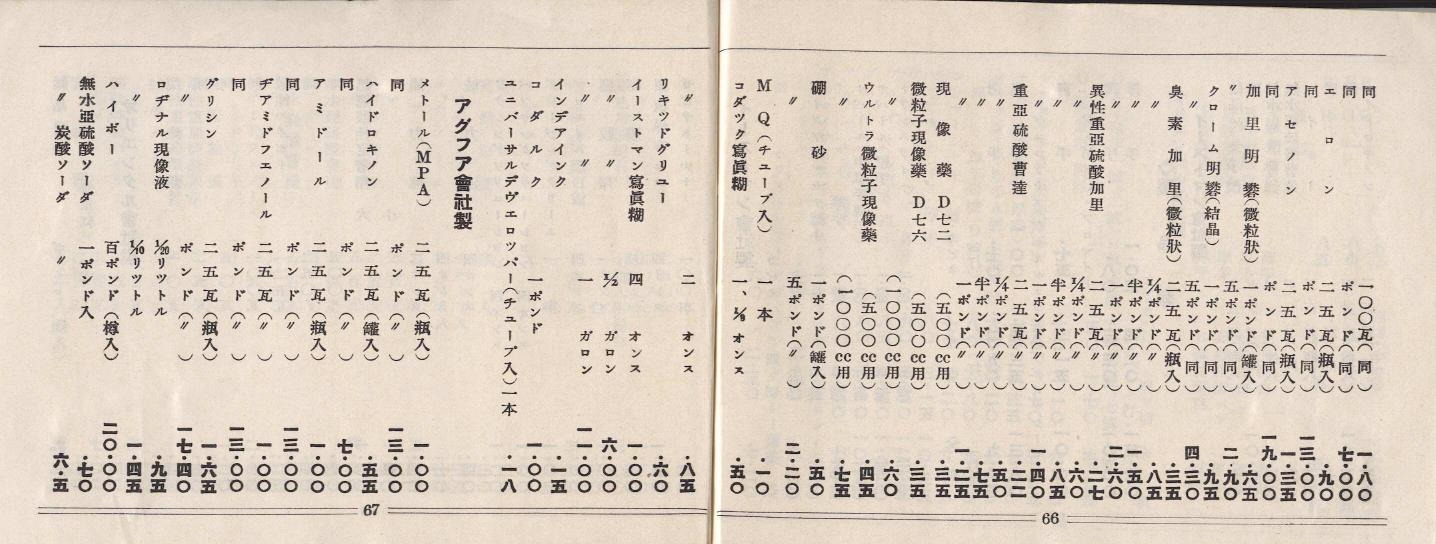 同 一〇〇瓦(同 ) 一・八〇
同 ポンド(同 ) 七・〇〇
エロン 二五瓦(瓶入) ・九〇
同 ポンド(同 ) 一三・〇〇
アセノン 二五瓦(瓶入) 一・三五
同 ポンド(同 ) 一九・〇〇
加里明礬(微粒狀) 一ポンド(罐入) ・六五
〃 五ポンド(同 ) 二・九〇
クローム明礬(結晶) 一ポンド(同 ) ・九五
〃 五ポンド(同 ) 四・三〇
臭素加里(微粒狀) 二五瓦(瓶入) ・三五
〃 ¼ポンド(〃 ) ・八五
〃 半ポンド(〃 ) 一・五〇
〃 一ポンド(〃 ) 二・六〇
異性重亞硫酸加里 二五瓦(瓶入) ・二七
〃 ¼ポンド(〃 ) ・六〇
〃 半ポンド(〃 ) ・八五
〃 一ポンド(〃 ) 一・四〇
重亞硫酸曹達 二五瓦(瓶入) ・二二
〃 ¼ポンド(〃 ) ・五〇
〃 半ポンド(〃 ) ・七五
〃 一ポンド(〃 ) 一・二五
現像藥 D七二 (五〇〇cc用) ・三五
微粒子現像藥 D七六 (五〇〇cc用) ・三五
〃 (一〇〇〇cc用) ・六〇
ウルトラ微粒子現像藥 (五〇〇cc用) ・四五
〃 (一〇〇〇cc用) ・七五
硼砂 一ポンド(罐入) ・五〇
〃 五ポンド(〃 ) 二・二〇
MQ(チューブ入) 一本 ・一〇
コダック寫眞糊 一、⅛オンス ・五〇
66
〃 二オンス ・八五
リキッドグリュー ・六〇
イーストマン寫眞糊 四オンス 一・〇〇
〃 〃 ½ガロン 六・〇〇
〃 〃 一ガロン 一一・〇〇
インデアインク ・一五
コダルク 一ポンド 一・〇〇
ユニバーサルデヴェロッパー(チューブ入)一本 ・一八
アグフア會社製
メトール(MPA) 二五瓦(瓶入) 一・〇〇
同 ポンド(〃 ) 一三・〇〇
ハイドロキノン 二五瓦(罐入) ・五五
同 ポンド(〃 ) 七・〇〇
アミドール 二五瓦(瓶入) 一・〇〇
同 ポンド(〃 ) 一三・〇〇
ヂアミドフエノール 二五瓦(〃 ) 一・〇〇
同 ポンド(〃 ) 一三・〇〇
グリシン 二五瓦(瓶入) 一・六五
〃 ポンド(〃 ) 一七・四〇
ロヂナル現像液 1/20リットル ・九五
〃 1/10リットル 一・四五
ハイポー 百ポンド(樽入) 二〇・〇〇
無水亞硫酸ソーダ 一ポンド入 ・七〇
〃 炭酸ソーダ 〃 ・六五
67